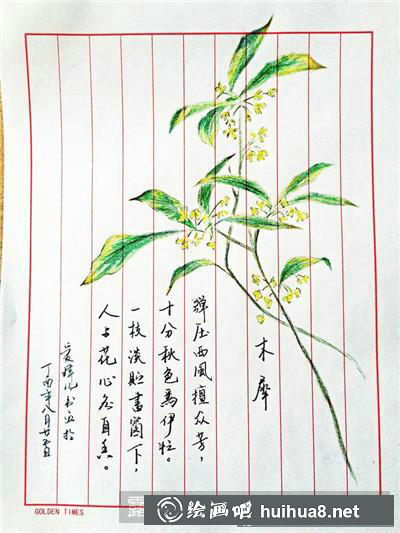 木犀
彈压西風擅众芳，
十分秋色為伊忙。
一枝淡贮書窗下，
人与花心各自香。
丁酉年八月廿五日
GOLDEN TIMES
绘画吧 huihua8.net